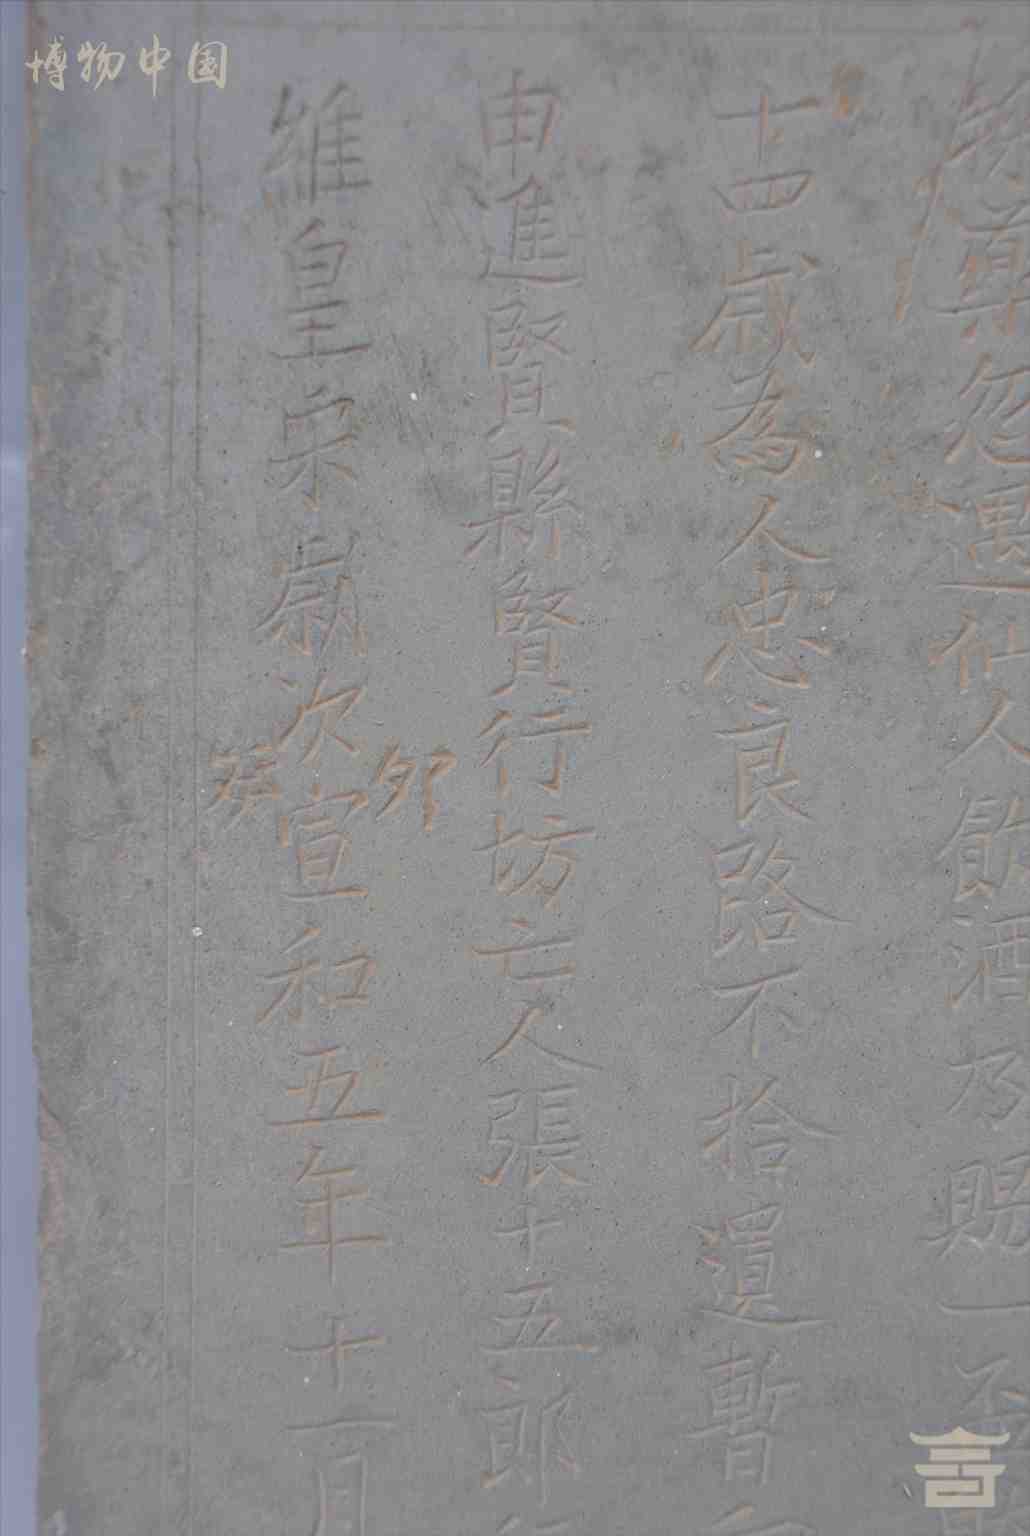 博物中国
維皇宋歲次癸卯宣和五年十一月
申進賢縣賢行坊亡人張十五郎
十四歲為人忠良路不拾遺暫
忽遇仙人飲酒乃賜一盃